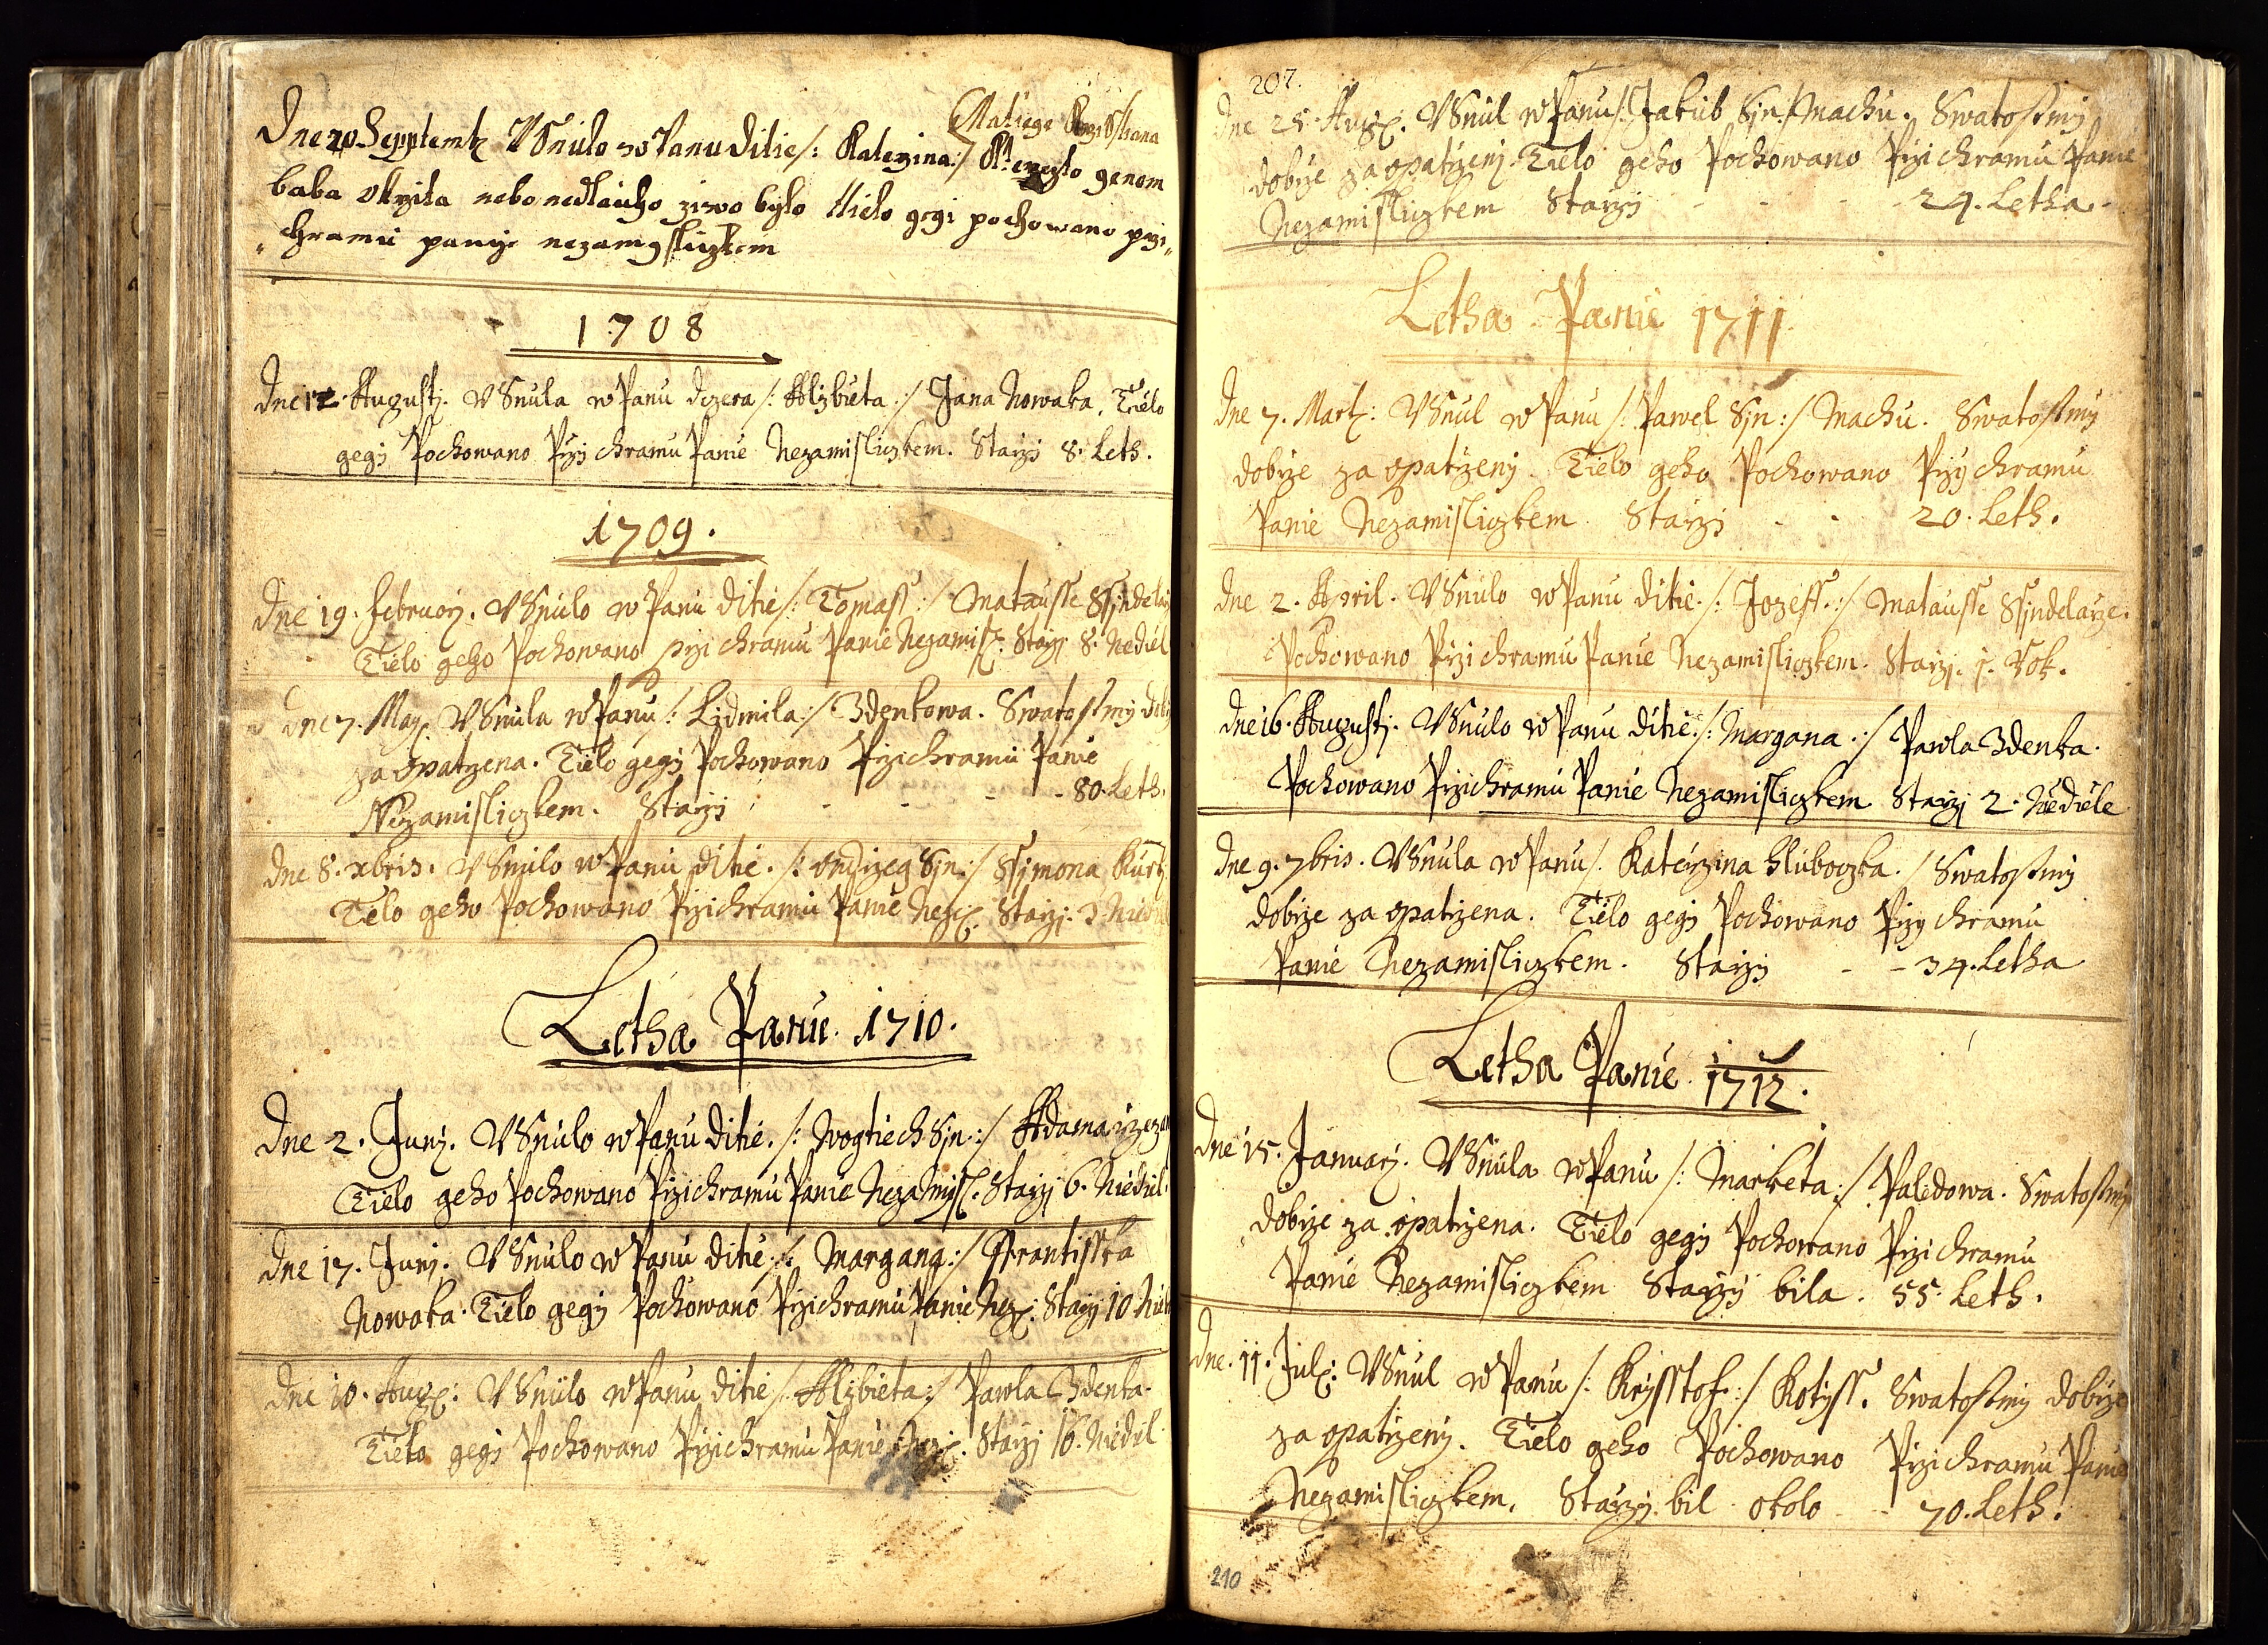 Matiege
Dne 20 Septemb VSnulo w Panu ditie /: Katerzina :/ genom
baba okrzila nebo nedlauho ziwo bylo tielo gegi pochowano przi
chramu panie nezamysliczkem
1708
Dne 12. Augustj. VSnula w Panu dczera /: Alzbieta :/ Jana Nowaka. Tielo
gegj Pochowano Przj chramu Panie Nezamisliczkem. Starzj 8. Leth.
1709.
Dne 19. februarj. VSnulo w Panu ditie /: Tomass :/ Matausse Ssindelarz
Tielo geho Pochowano przi chramu Panie Nezamis. Starzj 8. Nediel
dne 7. Maj. VSnula w Panu /: Lidmila :/ Zdenkowa. Swatostmi dob
za opatrzena. Tielo gegj Pochowano Przi chramu Panie
Nezamisliczkem. Starzj - - - 80. Leth.
dne 8. xbris. VSnulo w Panu ditie. /: Ondrzeg Sjn :/ Ssimona
Telo geho Pochowano Przi chramu Panie Nez. Starzj. 3. Niedie
Letha Panie. 1710.
Dne 2. Junj. VSnulo w Panu ditie. /: Wogtiech Sjn :/ Adama
Tielo geho Pochowano Przi chramu Panie Nezamisl. Starzj 6. Niediel.
Dne 17. Junj. VSnulo w Panu ditie /: Margana :/ Frantisska
Nowaka. Tielo gegj Pochowano Przi chramu Panie Nez. Starzj 10. Nied
dne 10. Aug. VSnulo w Panu ditie /: Alzbieta :/ Pawla Zdenka.
Tielo gegj Pochowano Przi chramu Panie Nez. Starzj 16. Niediel
207.
Dne 25. Aug. VSnul w Panu /: Jakub Sjn :/ Machu. Swatostmi
dobrze za opatrzenj. Tielo geho Pochowano Przi chramu Panie
Nezamisliczkem Starzj - - - - 24. Letha.
Letha Panie 1711
dne 7. Mart: VSnul w Panu /: Pawel Sjn :/ Machu. Swatostmi
dobrze za opatrzenj. Tielo geho Pochowano Przy chramu
Panie Nezamisliczkem. Starzj - - 20. Leth.
dne 2. April. VSnulo w Panu ditie. /: Jozeff. :/ Matausse Ssjndelarze.
Pochowano Przi chramu Panie Nezamisliczkem. Starzj. 1. Rok.
dne 16. Augustj. VSnulo w Panu ditie. /: Margana. :/ Pawla Zdenka.
Pochowano Przi chramu Panie Nezamisliczkem Starzj 2. Niediele
dne 9. 7bris. VSnula w Panu /. Katerzina Hluboczka. / Swatostmi
dobrze za opatrzena. Tielo gegj Pochowano Przy chramu
Panie Nezamisliczkem. Starzj - - 34. Letha
Letha Panie. 1712.
dne 15. Januarj. VSnula w Panu /: Marketa :/ Palidowa. Swatostmi
dobrze za opatrzena. Tielo gegj Pochowano Przi chramu
Panie Nezamisliczkem Starzj bila. 55. Leth.
dne. 11. Jul: VSnul w Panu /: Krysstof :/ Kotyss. Swatostmi dobrze
za opatrzenj. Tielo geho Pochowano Przi chramu Panie
Nezamisliczkem. Starzj. bil okolo - - 70. Leth.
210